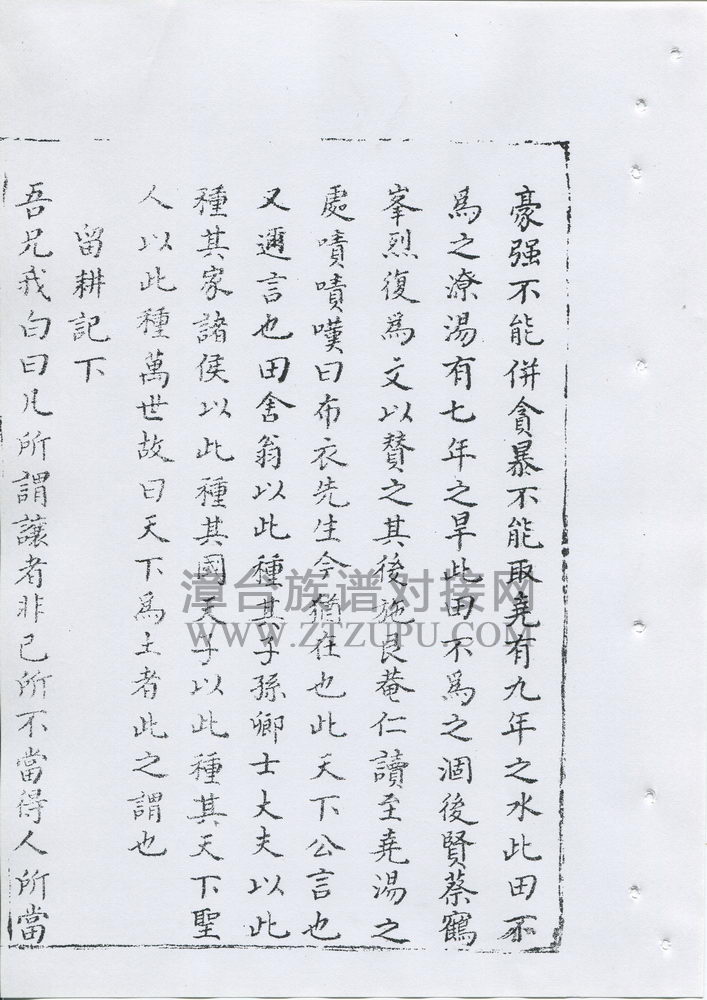 豪强不能併貪暴不能取堯有九年之水此田不
爲之潦湯有七年之旱此田不爲之涸後賢蔡鶴
峯烈復爲文以贊之其後施良菴仁讀至堯湯之
處嘖嘖嘆曰布衣先生今猶在也此天下公言也
又邇言也田舍翁以此種其子孫卿士大夫以此
種其家諸侯以此種其國天子以此種其天下聖
人以此種萬世故曰天下爲土者此之謂也
留耕記下
吾兄我白曰凡所謂讓者非己所不當得人所當
漳台族谱对接网
WWW.ZTZUPU.COM